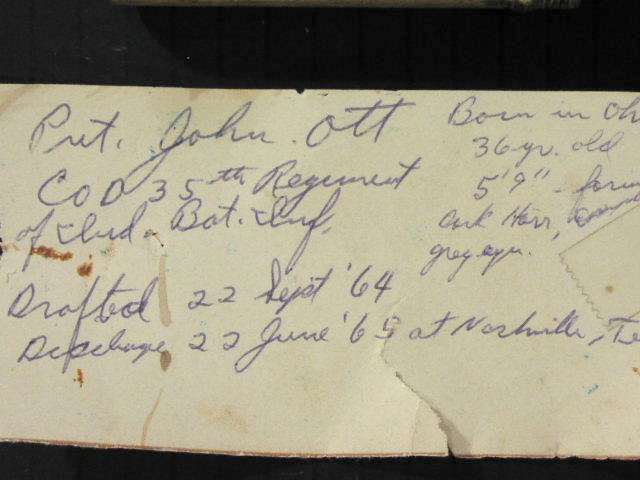 Pvt. John Ott
Co D 35th Regiment
of Ind. Bat. Inf.
Drafted 22 Sept '64
Discharge 22 June '65 at Nashville, Te
Born in Oh
36 yr. old
5'9" - farm
dark Hair,
grey eyes.